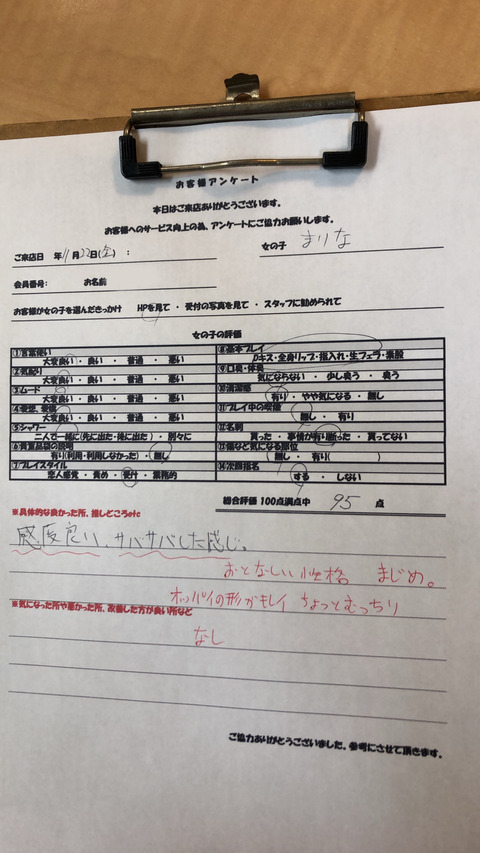 お客様アンケート
本日はご来店ありがとうございます。
お客様へのサービス向上の為、アンケートにご協力お願いします。
ご来店日 年 11月22日(金) : 女の子 まりな
会員番号: お名前
お客様が女の子を選んだきっかけ HPを見て ・ 受付の写真を見て ・ スタッフに勧められて
女の子の評価
①言葉使い
大変良い ・ 良い ・ 普通 ・ 悪い
②気配り
大変良い ・ 良い ・ 普通 ・ 悪い
③ムード
大変良い ・ 良い ・ 普通 ・ 悪い
大変良い ・ 良い ・ 普通 ・ 悪い
⑤シャワー
二人で一緒に(先に出た・後に出た) ・ 別々に
有り(利用・利用しなかった) ・ 無し
⑦プレイスタイル
恋人感覚 ・ 責め ・ 受け ・ 業務的
⑧基本プレイ
Dキス・全身リップ・指入れ・生フェラ・素股
⑨口臭・体臭
気にならない ・ 少し臭う ・ 臭う
⑩清潔感
有り ・ やや気になる ・ 無し
⑪プレイ中の喫煙
無し ・ 有り
⑫名刺
貰った ・ 事情が有り断った ・ 貰ってない
無し ・ 有り( )
⑭次回指名
する ・ しない
総合評価 100点満点中 95 点
※具体的な良かった所、推しどころetc
感度良い、サバサバした感じ。
おとなしい性格 まじめ。
オッパイの形がキレイ ちょっとむっちり
※気になった所や悪かった所、改善した方が良い所など
なし
ご協力ありがとうございました。参考にさせて頂きます。